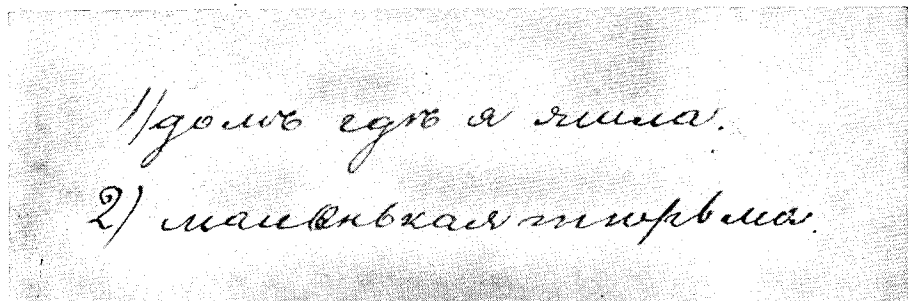 1) домъ гдѣ я жила.
2) маленькая тюрьма.